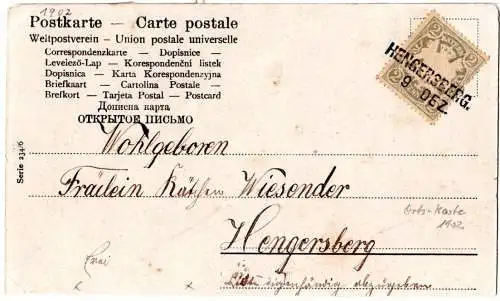 1902
Postkarte — Carte postale
Weltpostverein — Union postale universelle
Correspondenzkarte — Dopisnice —
Levelező-Lap — Korespondenční listek
Dopisnica — Karta Korespondenzyjna
Briefkaart — Cartolina Postale —
Brefkort — Tarjeta Postal — Postcard
Дописна карта
ОТКРЫТОЕ ПИСЬМО
2
HENGERSBERG.
9 DEZ.
Wohlgeboren
Fräulein Käthchen Wiesender
Orts-Karte
1902
Hengersberg
frei
eigenhändig abzugeben
Serie 234/6